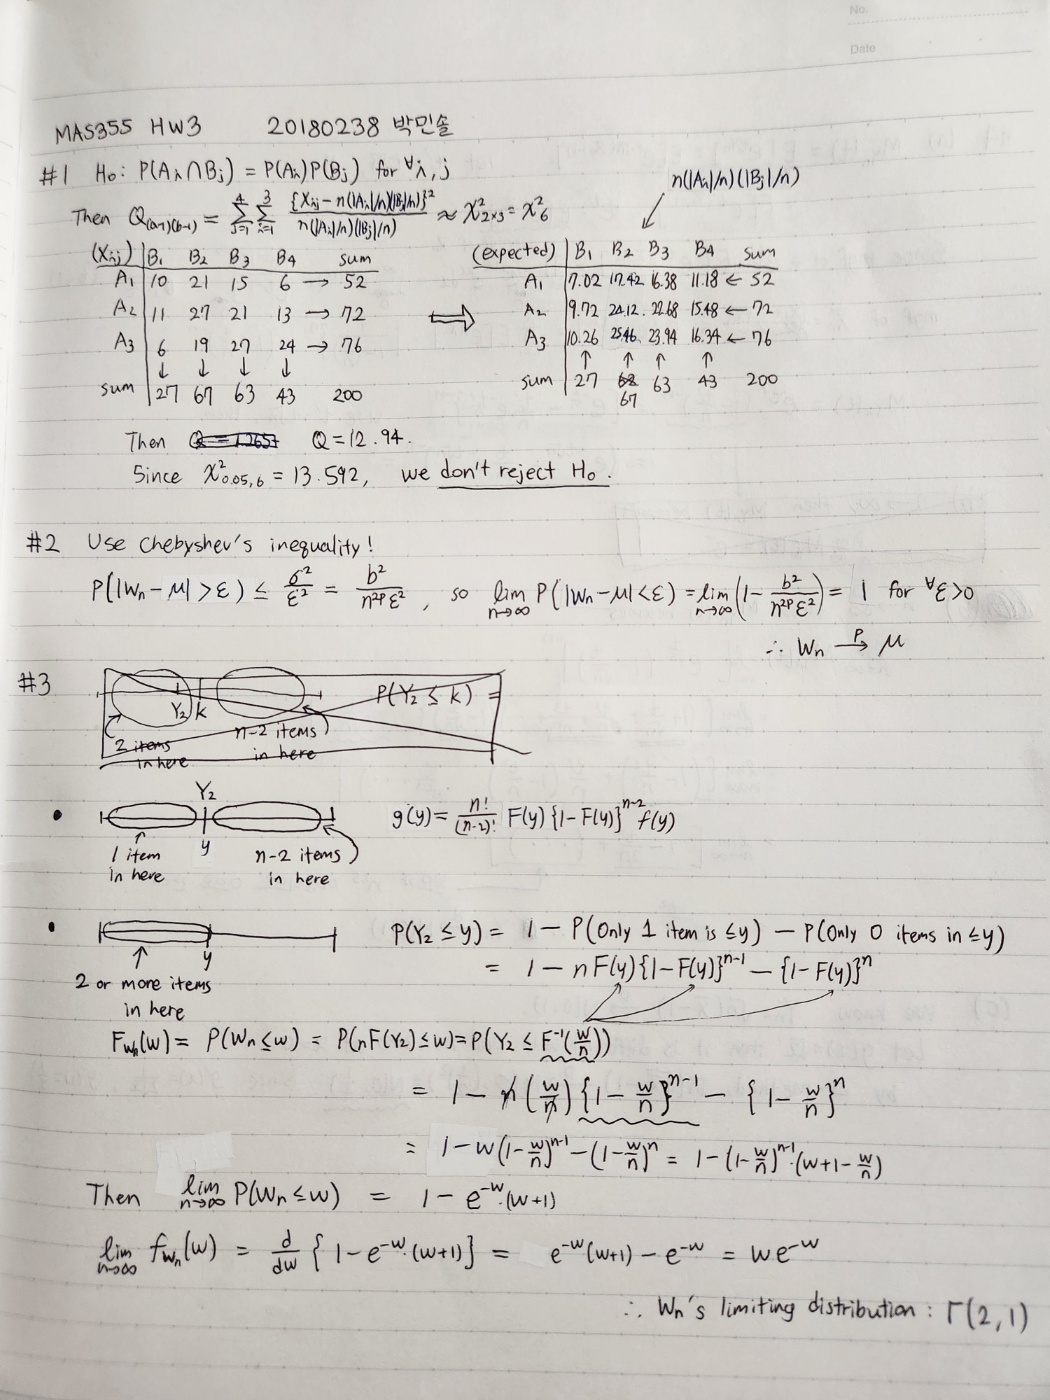 No.
Date
MAS355 HW3 20180238 박민솔
#1 H₀: P(Aᵢ∩Bⱼ) = P(Aᵢ)P(Bⱼ) for ∀i, j
n(|Aᵢ|/n)(|Bⱼ|/n)
Then Q₍ₐ₋₁₎₍b₋₁₎ = Σ_{j=1}^{4} Σ_{i=1}^{3} {Xᵢⱼ - n(|Aᵢ|/n)(|Bⱼ|/n)}² / n(|Aᵢ|/n)(|Bⱼ|/n) ≈ χ²_{2×3} = χ²₆
(Xᵢⱼ) B₁ B₂ B₃ B₄ sum
A₁ 10 21 15 6 → 52
A₂ 11 27 21 13 → 72
A₃ 6 19 27 24 → 76
↓ ↓ ↓ ↓
sum 27 67 63 43 200
⇒
(expected) B₁ B₂ B₃ B₄ sum
A₁ 7.02 17.42 16.38 11.18 ← 52
A₂ 9.72 24.12. 22.68 15.48 ← 72
A₃ 10.26 25.46 23.94 16.34 ← 76
↑ ↑ ↑ ↑
sum 27 68 63 43 200
67
Then Q = 1.2657 Q = 12.94.
Since χ²₀.₀₅,₆ = 13.592, we don't reject H₀.
#2 Use Chebyshev's inequality!
P(|Wₙ-μ| > ε) ≤ σ²/ε² = b²/(n^{2p}ε²), so lim_{n→∞} P(|Wₙ-μ|<ε) = lim_{n→∞} (1 - b²/(n^{2p}ε²)) = 1 for ∀ε>0
∴ Wₙ →ᴾ μ
#3
Y₂ k P(Y₂ ≤ k) =
2 items in here
n-2 items in here
• Y₂ g(y) = n!/(n-2)! F(y){1-F(y)}^{n-2} f(y)
y
1 item in here
n-2 items in here
• P(Y₂ ≤ y) = 1 - P(Only 1 item is ≤y) - P(Only 0 items in ≤y)
y
= 1 - nF(y){1-F(y)}^{n-1} - {1-F(y)}^n
2 or more items in here
F_{Wₙ}(w) = P(Wₙ≤w) = P(nF(Y₂)≤w) = P(Y₂ ≤ F⁻¹(w/n))
= 1 - n(w/n){1 - w/n}^{n-1} - {1 - w/n}^n
= 1-w(1-w/n)^{n-1} - (1-w/n)^n = 1-(1-w/n)^{n-1}·(w+1-w/n)
Then lim_{n→∞} P(Wₙ ≤ w) = 1 - e^{-w}·(w+1)
lim_{n→∞} f_{Wₙ}(w) = d/dw {1 - e^{-w}·(w+1)} = e^{-w}(w+1) - e^{-w} = we^{-w}
∴ Wₙ's limiting distribution : Γ(2, 1)